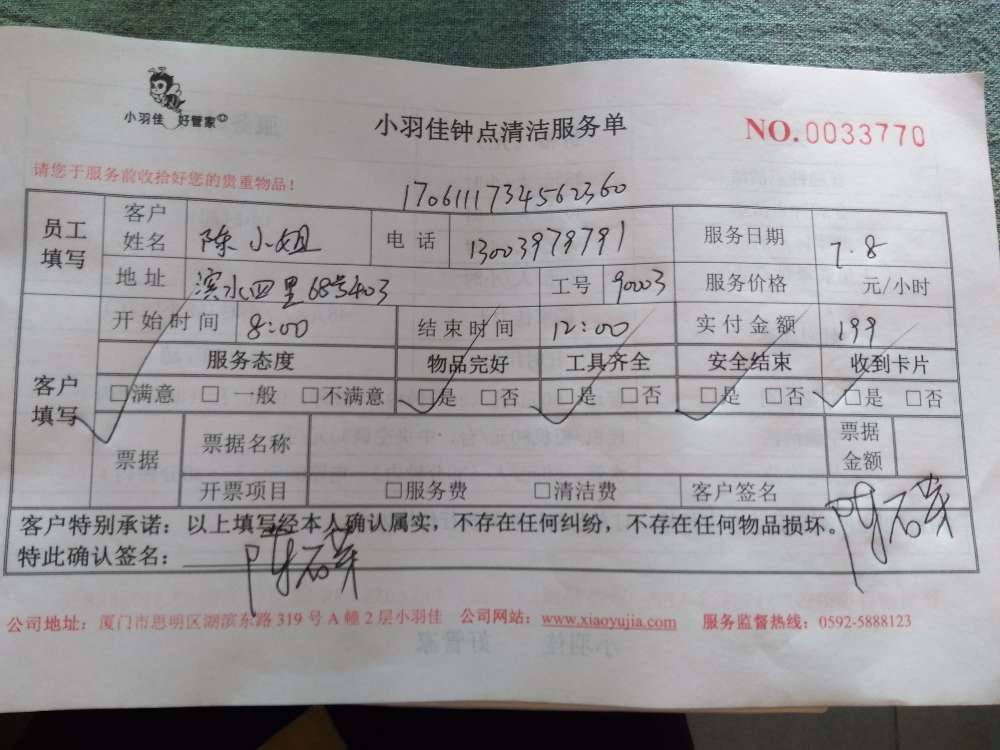 小羽佳 好管家
小羽佳钟点清洁服务单
NO.0033770
请您于服务前收拾好您的贵重物品！
1706111734562360
员工填写 客户姓名 陈小姐 电话 13003979791 服务日期 7.8
地址 滨水四里68号403 工号 90003 服务价格 元/小时
客户填写 开始时间 8:00 结束时间 12:00 实付金额 199
服务态度 物品完好 工具齐全 安全结束 收到卡片
□满意 □一般 □不满意 □是 □否 □是 □否 □是 □否 □是 □否
票据 票据名称 票据金额
开票项目 □服务费 □清洁费 客户签名
客户特别承诺：以上填写经本人确认属实，不存在任何纠纷，不存在任何物品损坏。
特此确认签名：
公司地址：厦门市思明区湖滨东路 319 号 A 幢 2 层小羽佳 公司网站：www.xiaoyujia.com 服务监督热线：0592-5888123